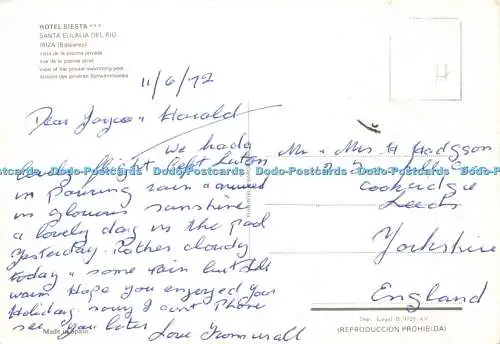 HOTEL SIESTA ***
SANTA EULALIA DEL RIO
IBIZA (Baleares)
vista de la piscina privada
vue de la piscine privé
view of the private swimming-pool
11/6/72
Dear Joyce & Harold
We had a
lovely flight left Luton
in pouring rain & arrived
in glorious sunshine
a lovely day in the pool
Yesterday. Rather cloudy
today & some rain but still
warm. Hope you enjoyed your
Holiday. sorry I cant Phone
see you later
Love from us all
Made in Spain
Mr & Mrs H Hodgson
Cookridge
Leeds
Yorkshire
England
Dep. Legal B.
(REPRODUCCION PROHIBIDA)
Postcards Dodo-Postcards Dodo-Postcards Dodo-Postcards Dodo-Postcards